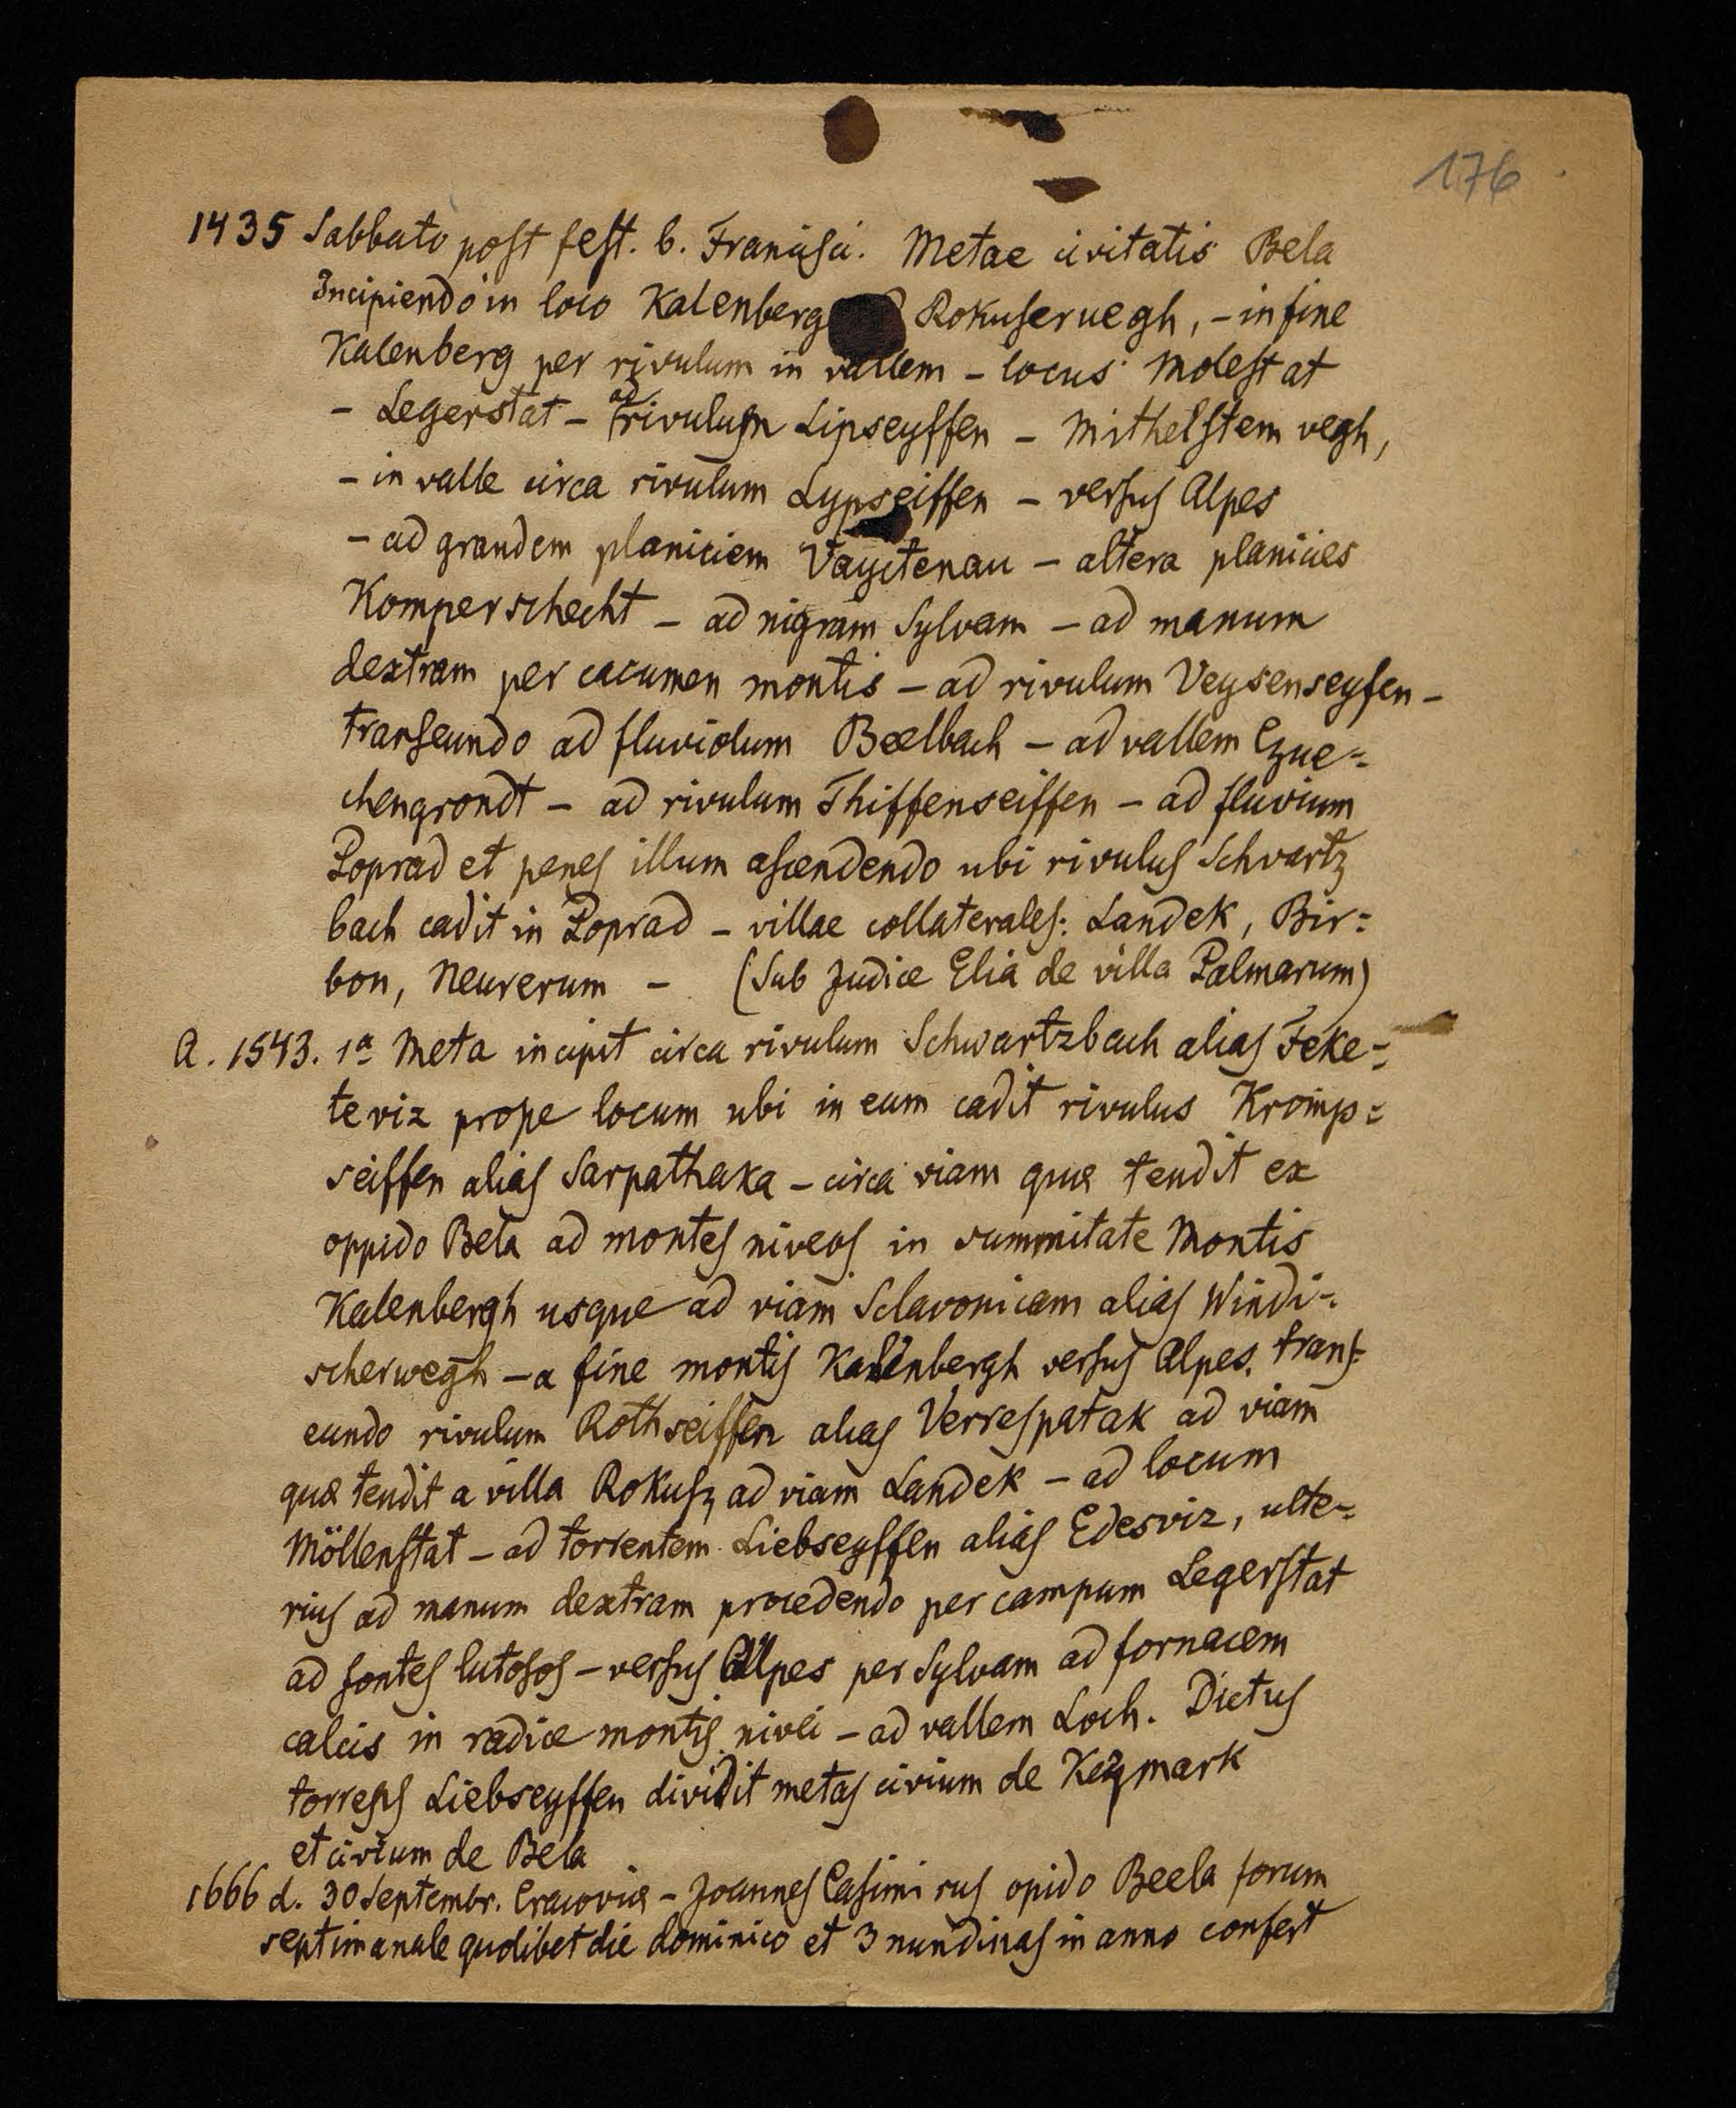 176
1435 Sabbato post fest. b. Francisci. Metae civitatis Bela
Incipiendo in loco Kalenberg Rokuseruegh, - in fine
Kalenberg per rivulum in vallem - locus Molestat
- Legerstat - ad rivulum Lipseyffen - Mithelstem vegh,
- in valle circa rivulum Lypseiffen - versus Alpes
- ad grandem planiciem Vayctenau - altera planicies
Komperschecht - ad nigram Sylvam - ad manum
dextram per cacumen montis - ad rivulum Veysenseyfen -
transeundo ad fluviolum Beelbach - ad vallem Czue=
chengrondt - ad rivulum Thiffenseiffen - ad fluvium
Poprad et penes illum ascendendo ubi rivulus Schvartz
bach cadit in Poprad - villae collaterales: Landek, Bir=
bon, Neurerum - (Sub Judice Elia de villa Palmarum)
A. 1543. 1a Meta incipit circa rivulum Schwartzbach alias Feke=
teviz prope locum ubi in eum cadit rivulus Kromp=
seiffen alias Sarpathaka - circa viam quæ tendit ex
oppido Bela ad montes niveos in summitate Montis
Kalenbergh usque ad viam Sclavonicam alias Windi=
scherwegh - a fine montis Kalenbergh versus Alpes. trans=
eundo rivulum Rothseiffen alias Verrespatak ad viam
quæ tendit a villa Rokusz ad viam Landek - ad locum
Möllenstat - ad torrentem Liebseyffen alias Edesviz, ulte=
rius ad manum dextram procedendo per campum Legerstat
ad fontes lutosos - versus Alpes per Sylvam ad fornacem
calcis in radice montis nivei - ad vallem Loch. Dictus
torrens Liebseyffen dividit metas civium de Kezmark
et civium de Bela
1666 d. 30 Septembr. Cracoviæ - Joannes Casimirus opido Beela forum
septimanale quolibet die dominico et 3 nundinas in anno confert